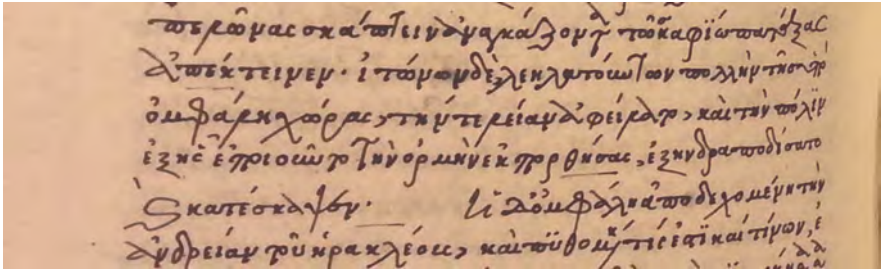 πελῶνας σκάπτειν ἀναγκάζοντα τῷ σκαφίω πατάξας
ἀπέκτεινεν· ἰτώνων δὲ λεηλατούντων πολλὴν τῆς ὑπὸ
ὀμφάλη χώρας, τήν τε λείαν ἀφείλετο, καὶ τὴν πόλιν
ἐξ ἧς ἐποιοῦντο τὴν ὁρμὴν ἐκπορθήσας, ἐξηνδραποδίσατο
καὶ κατέσκαψεν· ἡ δ' ὀμφάλη ἀποδεχομένη τὴν
ἀνδρείαν τοῦ ἡρακλέους, καὶ πυθομένη τίς ἐστὶ καὶ τίνων, ἐ